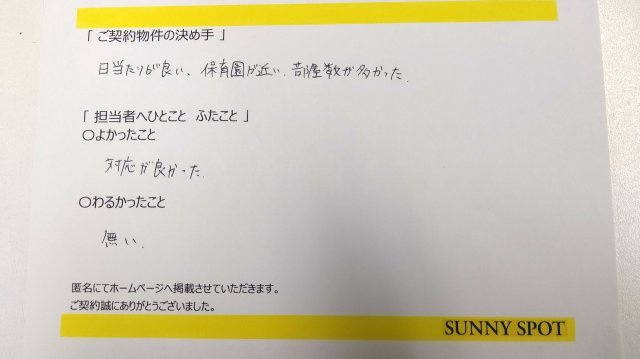 「 ご契約物件の決め手 」
日当たりが良い、保育園が近い、部屋数が多かった.
「 担当者へひとこと ふたこと 」
〇よかったこと
対応が良かった.
〇わるかったこと
無い.
匿名にてホームページへ掲載させていただきます。
ご契約誠にありがとうございました。
SUNNY SPOT